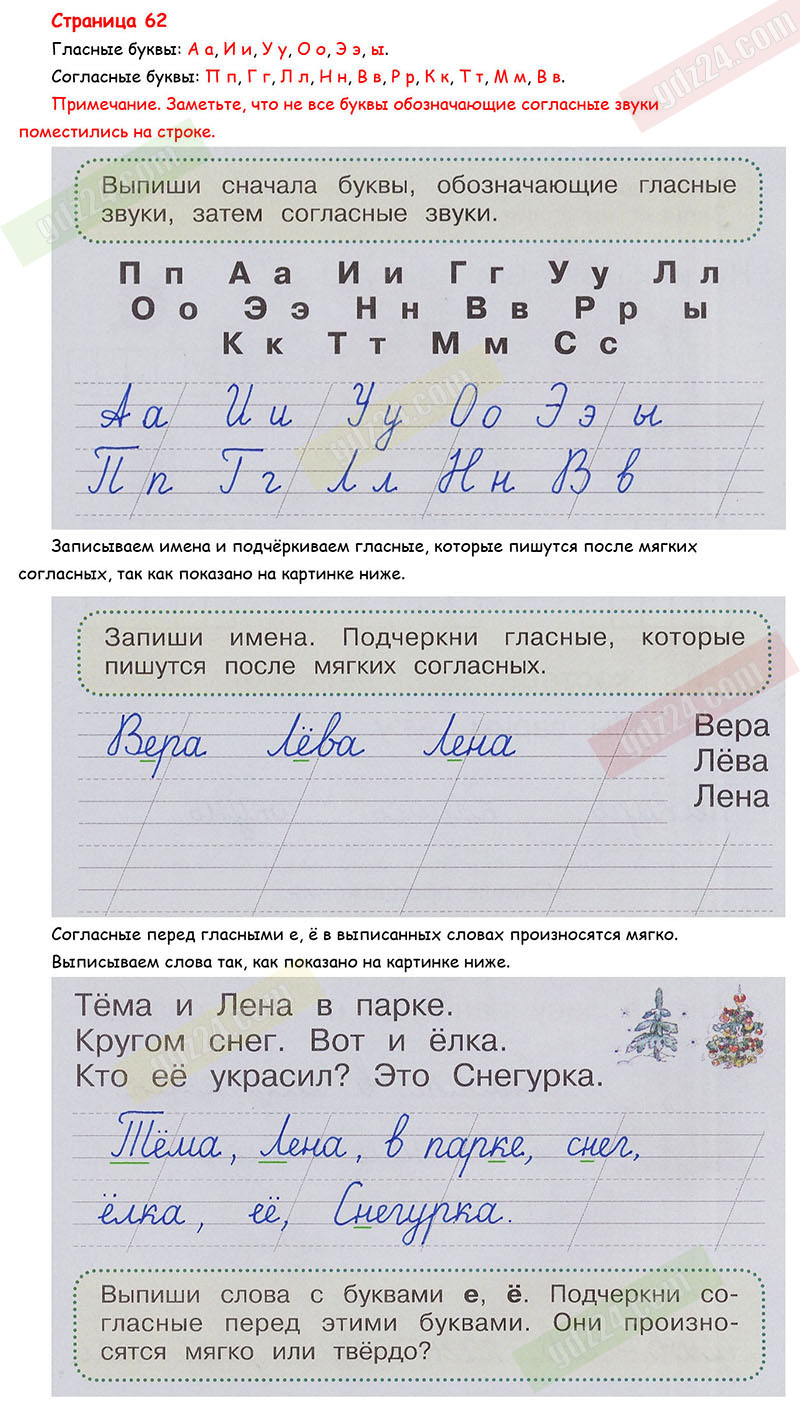 Страница 62
Гласные буквы: А а, И и, У у, О о, Э э, ы.
Согласные буквы: П п, Г г, Л л, Н н, В в, Р р, К к, Т т, М м, В в.
Примечание. Заметьте, что не все буквы обозначающие согласные звуки
поместились на строке.
gdz24.com
gdz24.com
Выпиши сначала буквы, обозначающие гласные
звуки, затем согласные звуки.
П п А а И и Г г У у Л л
О о Э э Н н В в Р р ы
К к Т т М м С с
А а И и У у О о Э э ы
gdz24.com
П п Г г Л л Н н В в
Записываем имена и подчёркиваем гласные, которые пишутся после мягких
согласных, так как показано на картинке ниже.
Запиши имена. Подчеркни гласные, которые
пишутся после мягких согласных.
Вера Лёва Лена
gdz24.com
Вера
Лёва
Лена
Согласные перед гласными е, ё в выписанных словах произносятся мягко.
Выписываем слова так, как показано на картинке ниже.
Тёма и Лена в парке.
Кругом снег. Вот и ёлка.
Кто её украсил? Это Снегурка.
gdz24.com
Тёма, Лена, в парке, снег,
ёлка, её, Снегурка.
Выпиши слова с буквами е, ё. Подчеркни со-
гласные перед этими буквами. Они произно-
сятся мягко или твёрдо?
gdz24.com